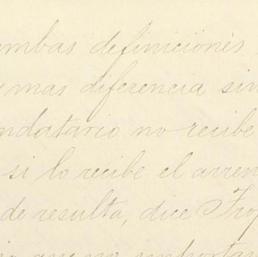 ambas definiciones
mas diferencia sin
ndatario no recibe
si lo recibe el arren
de resulta, dice Trop
que no importa